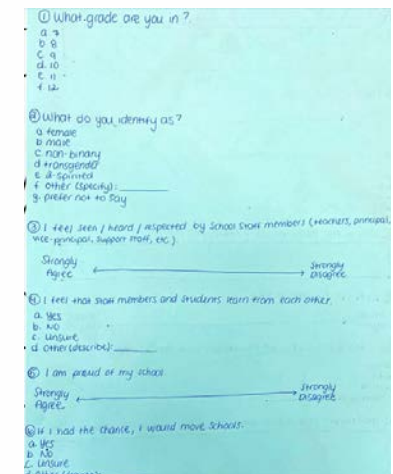 ① What grade are you in?
a. 7
b. 8
c. 9
d. 10
e. 11
f. 12
② What do you identify as?
a. female
b. male
c. non-binary
d. transgender
e. 2-spirited
f. other (specify): ______
g. prefer not to say
③ I feel seen / heard / respected by school staff members (teachers, principal,
vice-principal, support staff, etc.)
Strongly Agree
Strongly Disagree
④ I feel that staff members and students learn from each other.
a. Yes
b. No
c. unsure
d. other (describe): ______
⑤ I am proud of my school.
Strongly Agree
Strongly Disagree
⑥ If I had the chance, I would move schools.
a. Yes
b. No
c. unsure